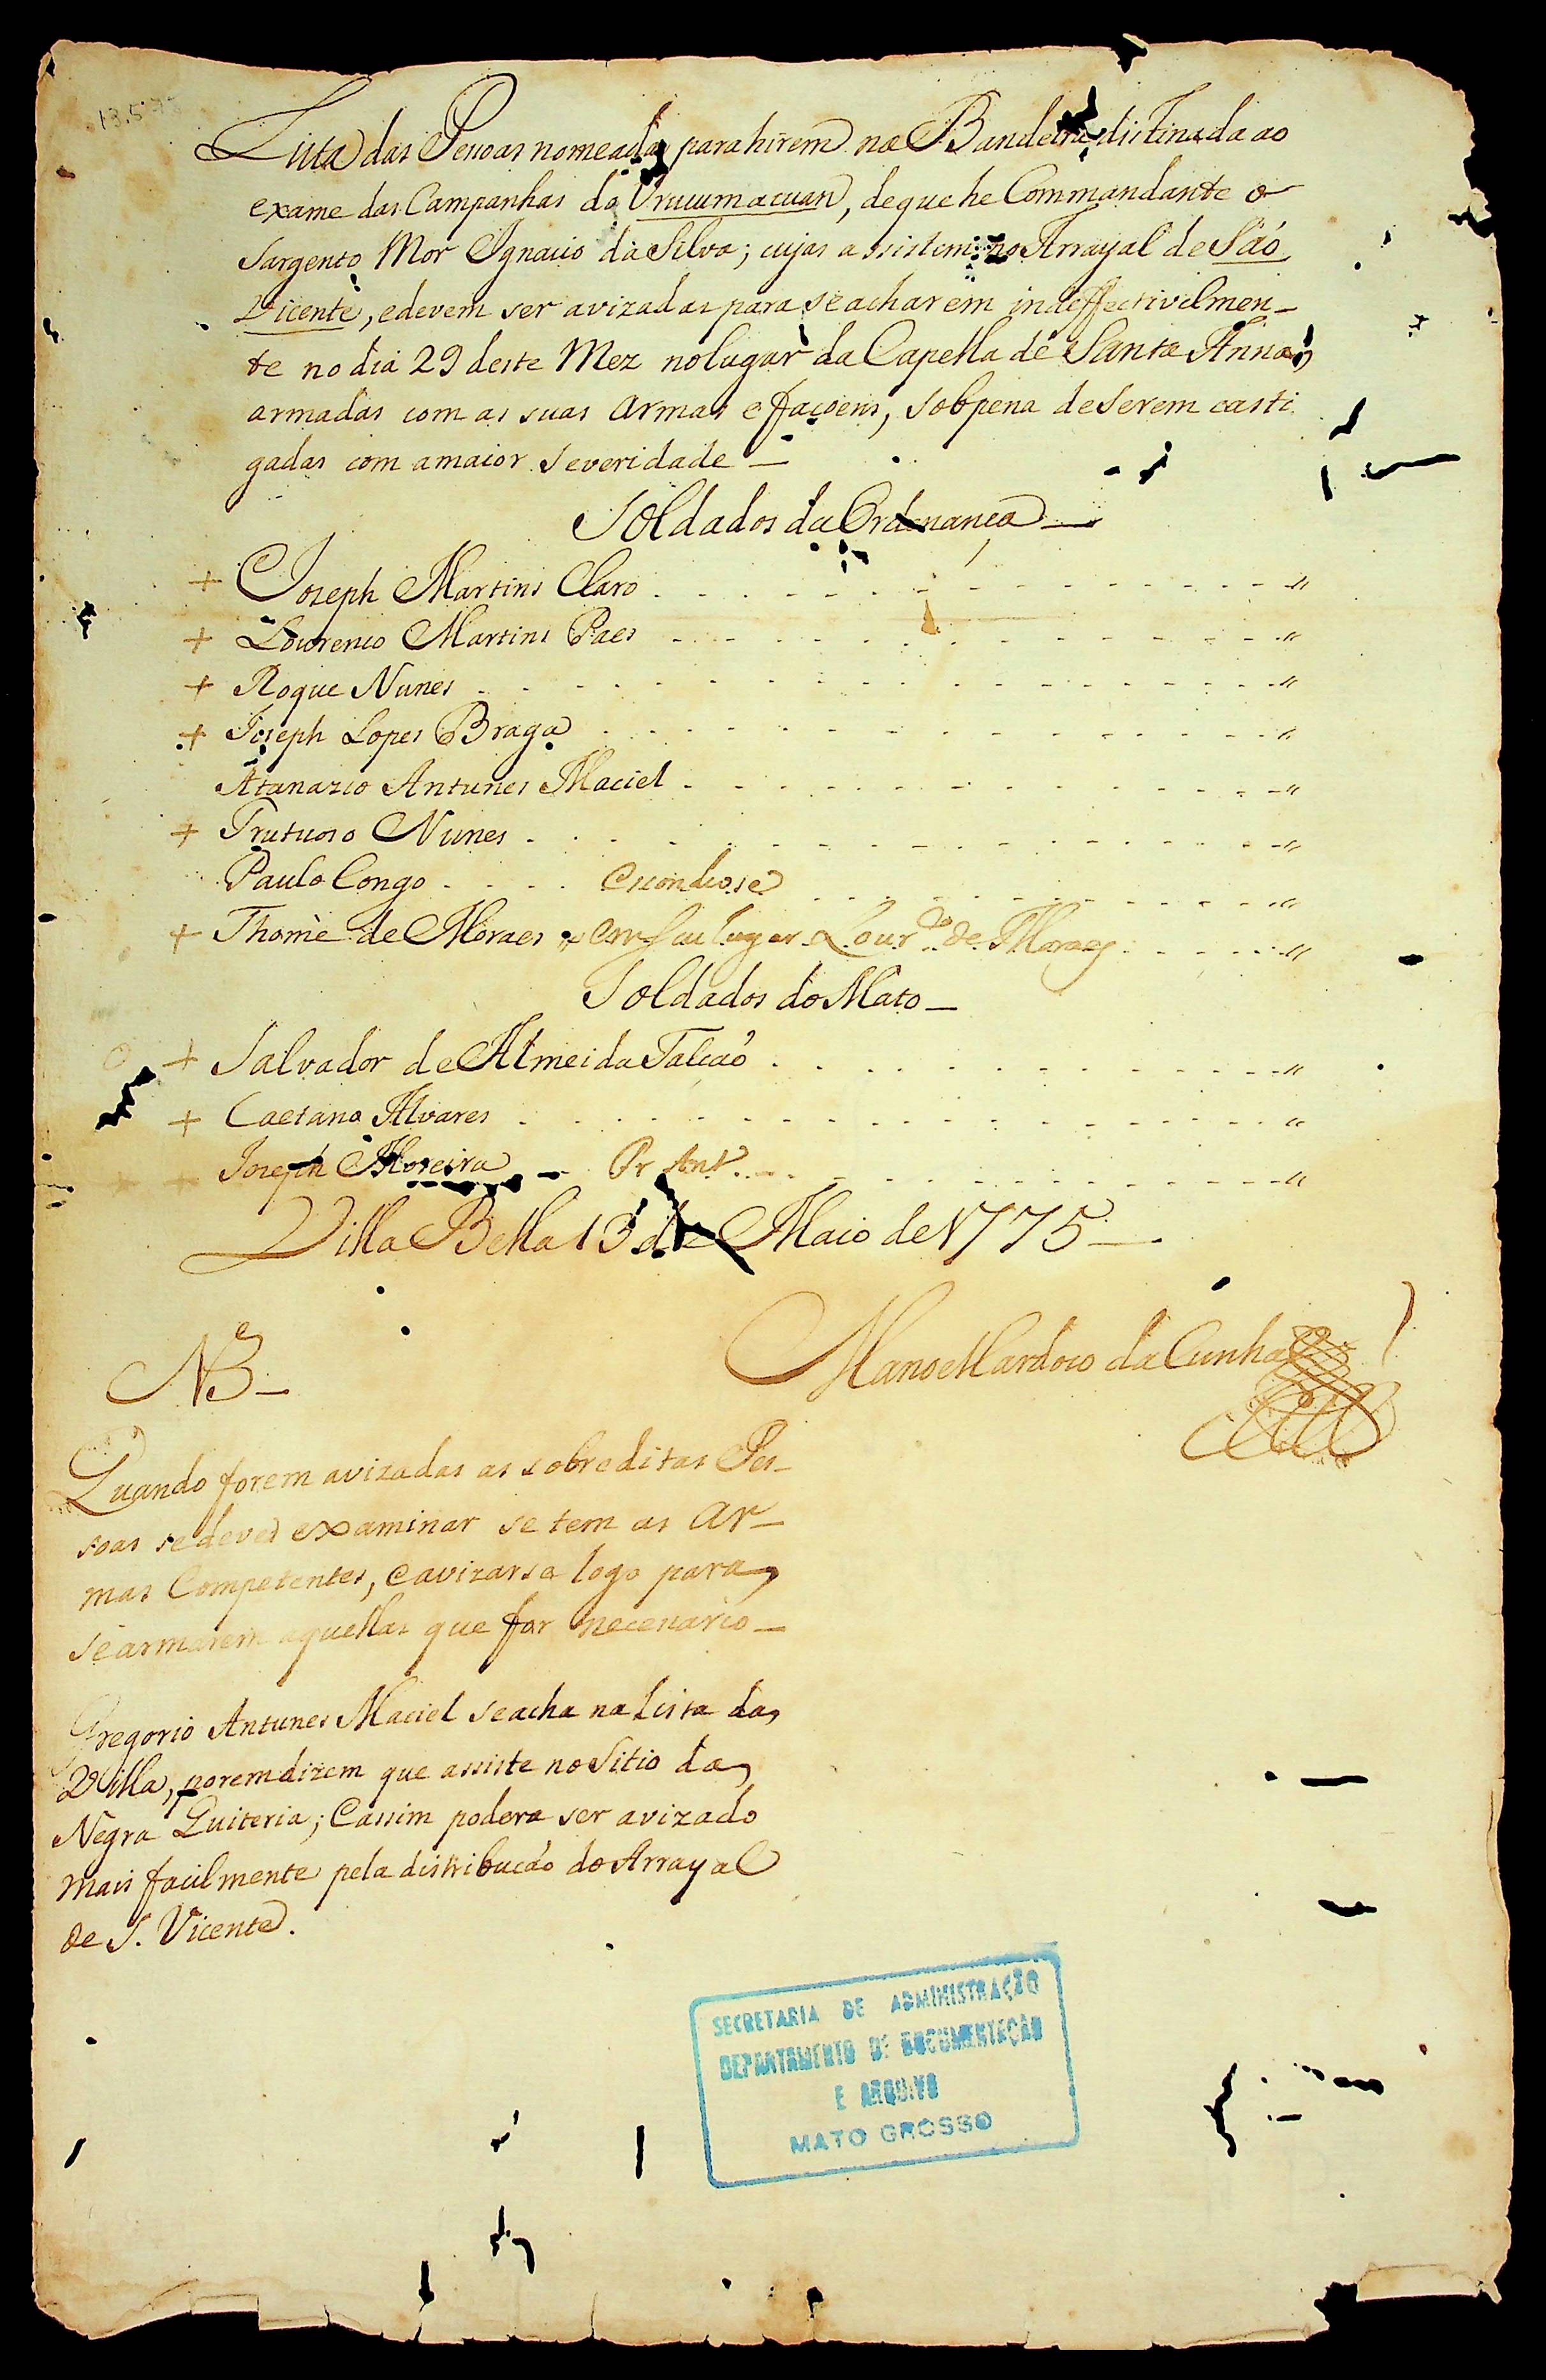 13.5.75
Lista das Pessoas nomeadas para hirem na Bandeira distinada ao
exame das Campanhas do Urucumacuan, de que he Commandante o
Sargento Mor Ignacio da Silva; cujas assistem no Arrayal de São
Vicente, e devem ser avizadas para se acharem indeffectivelmen-
te no dia 29 deste Mez no lugar da Capella de Santa Anna,
armadas com as suas armas e facoens, sobpena de serem casti
gadas com a maior severidade —
Soldados da Ordenança —
+ Joseph Martins Claro . . . . . . . . . . "
+ Lourenco Martins Paes . . . . . . . . . . "
+ Roque Nunes . . . . . . . . . . "
+ Joseph Lopes Braga . . . . . . . . . . "
Atanazio Antunes Maciel . . . . . . . . . . "
+ Frutuoso Nunes . . . . . . . . . . "
Paulo Congo . . . . Escondiose . . . . . . "
+ Thomè de Moraes em seu lugar Lour.ço de Moraes . . . . . "
Soldados do Mato —
+ Salvador de Almeida Falcaó . . . . . . . . . . "
+ Caetano Alvares . . . . . . . . . . "
Joseph Moreira — Pr Ant.º . . . . . . . "
Villa Bella 13 de Maio de 1775 —
Manoel Cardoso da Cunha
NB —
Quando forem avizadas as sobreditas Pes-
soas se deve examinar se tem as Ar-
mas Competentes, e avizarse logo para
se armarem aquellas que for necessario —
Gregorio Antunes Maciel se acha na Lista da
Villa, porem dizem que assiste no Sitio da
Negra Quiteria; e assim podera ser avizado
mais facilmente pela distribucáo do Arrayal
de S. Vicente.
SECRETARIA DE ADMINISTRAÇÃO
DEPARTAMENTO DE DOCUMENTAÇÃO
E ARQUIVO
MATO GROSSO